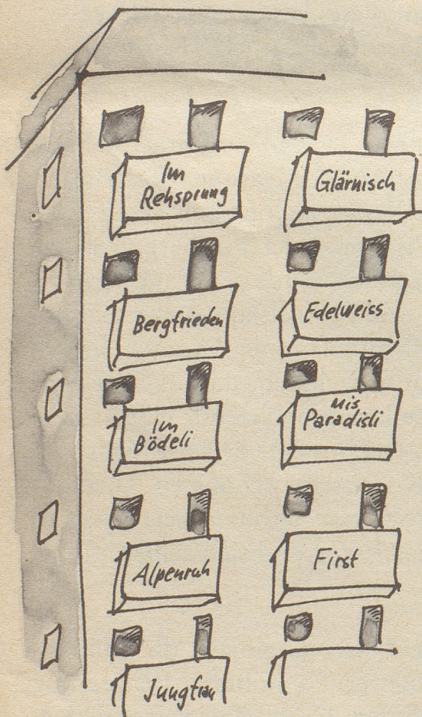 Im
Rehsprung
Glärnisch
Bergfrieden
Edelweiss
Im
Bödeli
Mis
Paradisli
Alpenruh
First
Jungfrau